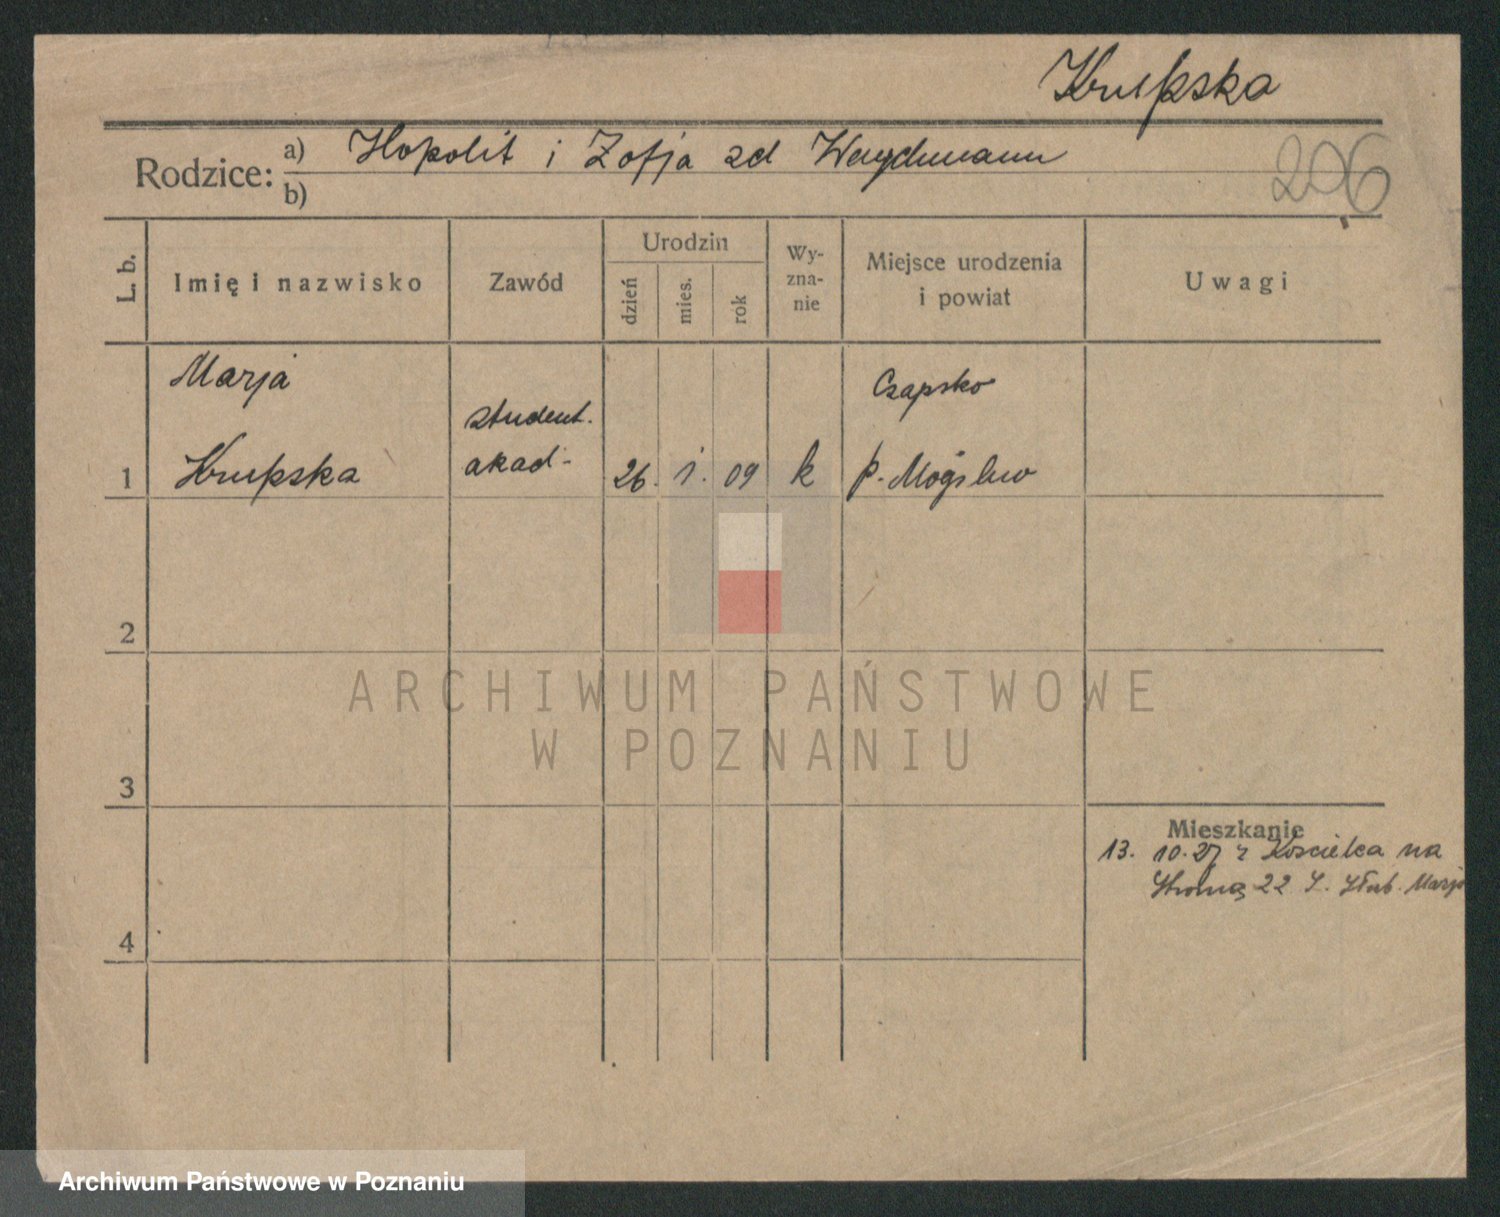 Krupska
Rodzice: a) Hopolit i Zofja zd Weychmann
b)
206
L. b.
Imię i nazwisko
Zawód
Urodzin
dzień
mies.
rok
Wy-
zna-
nie
Miejsce urodzenia
i powiat
Uwagi
Marja
Krupska
student.
akad.
26. 1. 09
k
Czapsko
p. Mogilno
1
2
3
4
Mieszkanie
13. 10. 27 z Kościelca na
22 Marja
ARCHIWUM PAŃSTWOWE
W POZNANIU
Archiwum Państwowe w Poznaniu